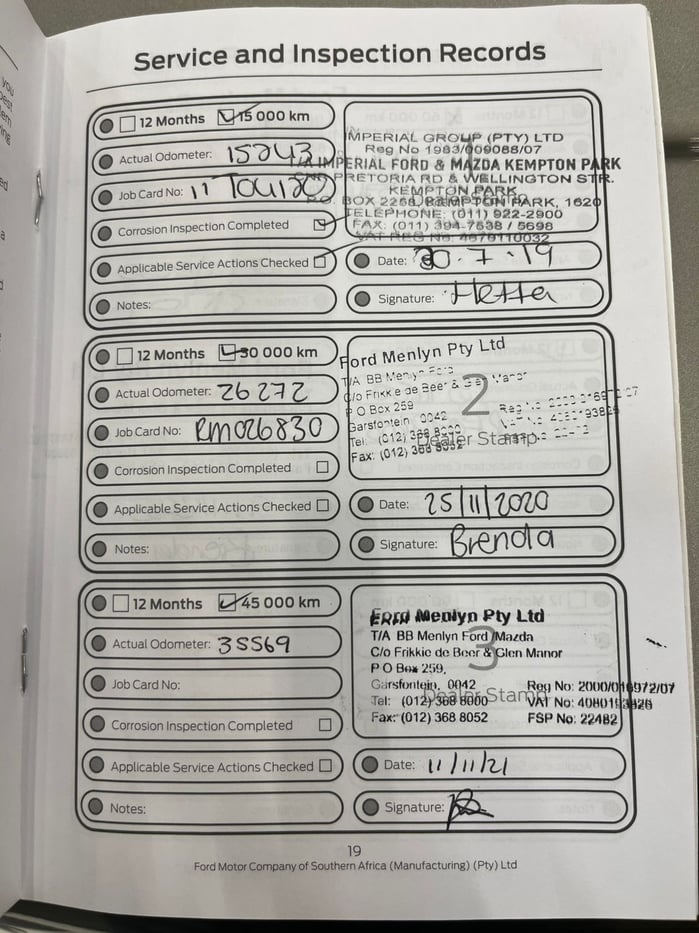 Service and Inspection Records
12 Months 15 000 km
Actual Odometer: 15243
Job Card No: 11
Corrosion Inspection Completed
Applicable Service Actions Checked
Notes:
IMPERIAL GROUP (PTY) LTD
Reg No 1983/009088/07
T/A IMPERIAL FORD & MAZDA KEMPTON PARK
PRETORIA RD & WELLINGTON STR.
KEMPTON PARK
P.O. BOX 2258, KEMPTON PARK, 1620
TELEPHONE: (011) 922-2900
FAX: (011) 394-7538 / 5698
VAT REG No: 4670110032
Date: 30.7.19
Signature:
12 Months 30 000 km
Actual Odometer: 26 272
Job Card No: RM026830
Corrosion Inspection Completed
Applicable Service Actions Checked
Notes:
Ford Menlyn Pty Ltd
T/A BB Menlyn Ford
C/o Frikkie de Beer & Glen Manor
P O Box 259
Garsfontein 0042
Tel: (012) 368 8000
Fax: (012) 368 8052
2
Dealer Stamp
Date: 25/11/2020
Signature: Brenda
12 Months 45 000 km
Actual Odometer: 35569
Job Card No:
Corrosion Inspection Completed
Applicable Service Actions Checked
Notes:
Ford Menlyn Pty Ltd
T/A BB Menlyn Ford/Mazda
C/o Frikkie de Beer & Glen Manor
P O Box 259,
Garsfontein, 0042 Reg No: 2000/016972/07
Tel: (012) 368 8000 VAT No:
Fax: (012) 368 8052 FSP No: 22482
3
Dealer Stamp
Date: 11/11/21
Signature:
19
Ford Motor Company of Southern Africa (Manufacturing) (Pty) Ltd